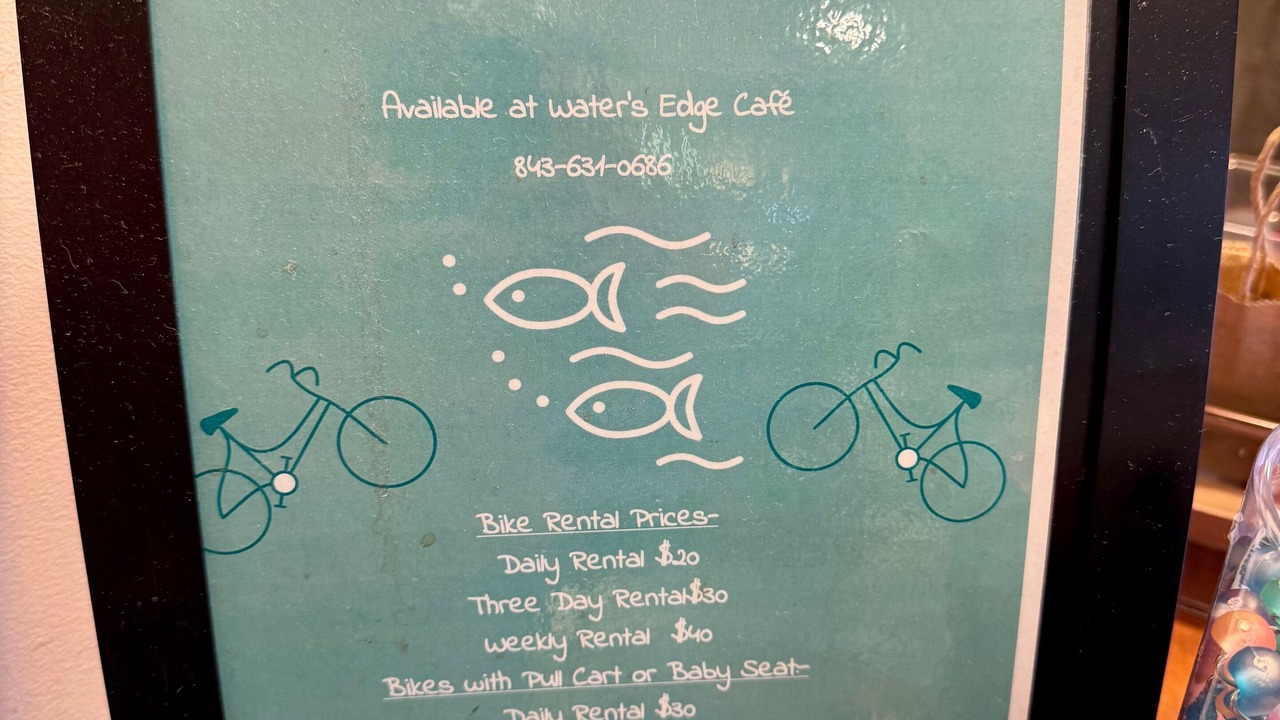 Available at Water's Edge Café
843-631-0686
Bike Rental Prices-
Daily Rental $20
Three Day Rental $30
Weekly Rental $40
Bikes with Pull Cart or Baby Seat-
Daily Rental $30